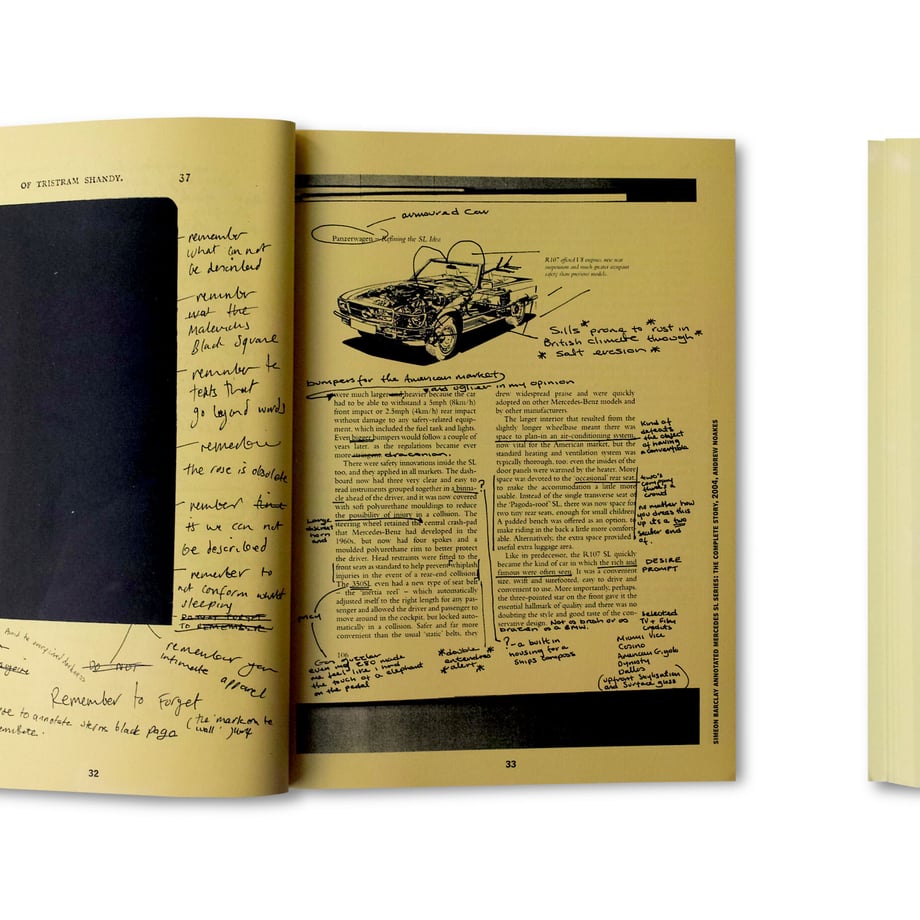 OF TRISTRAM SHANDY.
37
remember
what can not
be described
remember
Malevichs
Black Square
remember
texts that
go beyond words
remember
the rose is obsolete
remember
we can not
be described
remember to
not conform whilst
sleeping
TO REMEMBER
remember your
intimate
apparel
DO NOT
Remember to Forget
to annotate sterns black page
(the 'mark on the
wall'
32
armoured car
Panzerwagen – Refining the SL Idea
R107 offered V8 engines, new rear
suspension and much greater occupant
safety than previous models.
Sills * prone to * rust in
British climate through *
* Salt erosion *
bumpers for the American market
and uglier in my opinion
were much larger and heavier because the car
had to be able to withstand a 5mph (8km/h)
front impact or 2.5mph (4km/h) rear impact
without damage to any safety-related equip-
ment, which included the fuel tank and lights.
Even bigger bumpers would follow a couple of
years later, as the regulations became ever
more draconian.
There were safety innovations inside the SL
too, and they applied in all markets. The dash-
board now had three very clear and easy to
read instruments grouped together in a binna-
cle ahead of the driver, and it was now covered
with soft polyurethane mouldings to reduce
the possibility of injury in a collision. The
steering wheel retained the central crash-pad
that Mercedes-Benz had developed in the
1960s, but now had four spokes and a
moulded polyurethane rim to better protect
the driver. Head restraints were fitted to the
front seats as standard to help prevent whiplash
injuries in the event of a rear-end collision.
The 350SL even had a new type of seat belt
– the 'inertia reel' – which automatically
adjusted itself to the right length for any pas-
senger and allowed the driver and passenger to
move around in the cockpit, but locked auto-
matically in a collision. Safer and far more
convenient than the usual 'static' belts, they
106
Large
discreet
horn
and
?
Gas guzzler
even my 280 made
me feel like i had
the touch of a elephant
on the pedal
*double
entendres
*alert*
drew widespread praise and were quickly
adopted on other Mercedes-Benz models and
by other manufacturers.
The larger interior that resulted from the
slightly longer wheelbase meant there was
space to plan-in an air-conditioning system,
now vital for the American market, but the
standard heating and ventilation system was
typically thorough, too: even the insides of the
door panels were warmed by the heater. More
space was devoted to the 'occasional' rear seat,
to make the accommodation a little more
usable. Instead of the single transverse seat of
the 'Pagoda-roof' SL, there was now space for
two tiny rear seats, enough for small children.
A padded bench was offered as an option, to
make riding in the back a little more comfort.
Alternatively, the extra space provided
useful extra luggage area.
Like its predecessor, the R107 SL quickly
became the kind of car in which the rich and
famous were often seen. It was a convenient
size, swift and surefooted, easy to drive and
convenient to use. More importantly, perhaps,
the three-pointed star on the front gave it the
essential hallmark of quality and there was no
doubting the style and good taste of the con-
servative design. Not as brash or as
brazen as a BMW.
?- a built in
housing for a
ships compass
Kind of
defeats
the object
of having
a convertible
two's
company
three's a
crowd
no matter how
you dress this
up its a two
seater end
of.
DESIRE
PROMPT
Selected
TV + Film
Credits
Miami Vice
Casino
American Gigolo
Dynasty
Dallas
(upfront Stylisation
and Surface gloss)
SIMEON BARCLAY ANNOTATED MERCEDES SL SERIES: THE COMPLETE STORY, 2004, ANDREW NOAKES
33